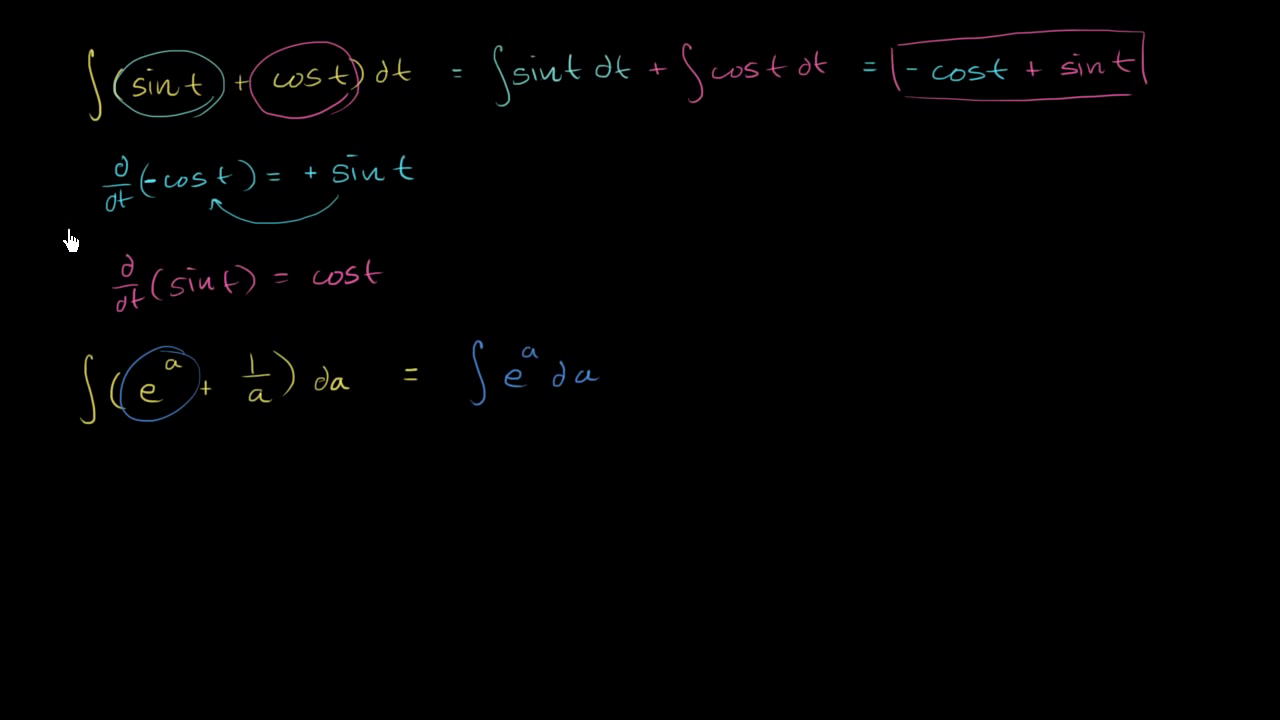 ∫(sin t + cos t) dt = ∫sin t dt + ∫cos t dt = - cos t + sin t
d/dt (-cos t) = + sin t
d/dt (sin t) = cos t
∫(e^a + 1/a) da = ∫e^a da